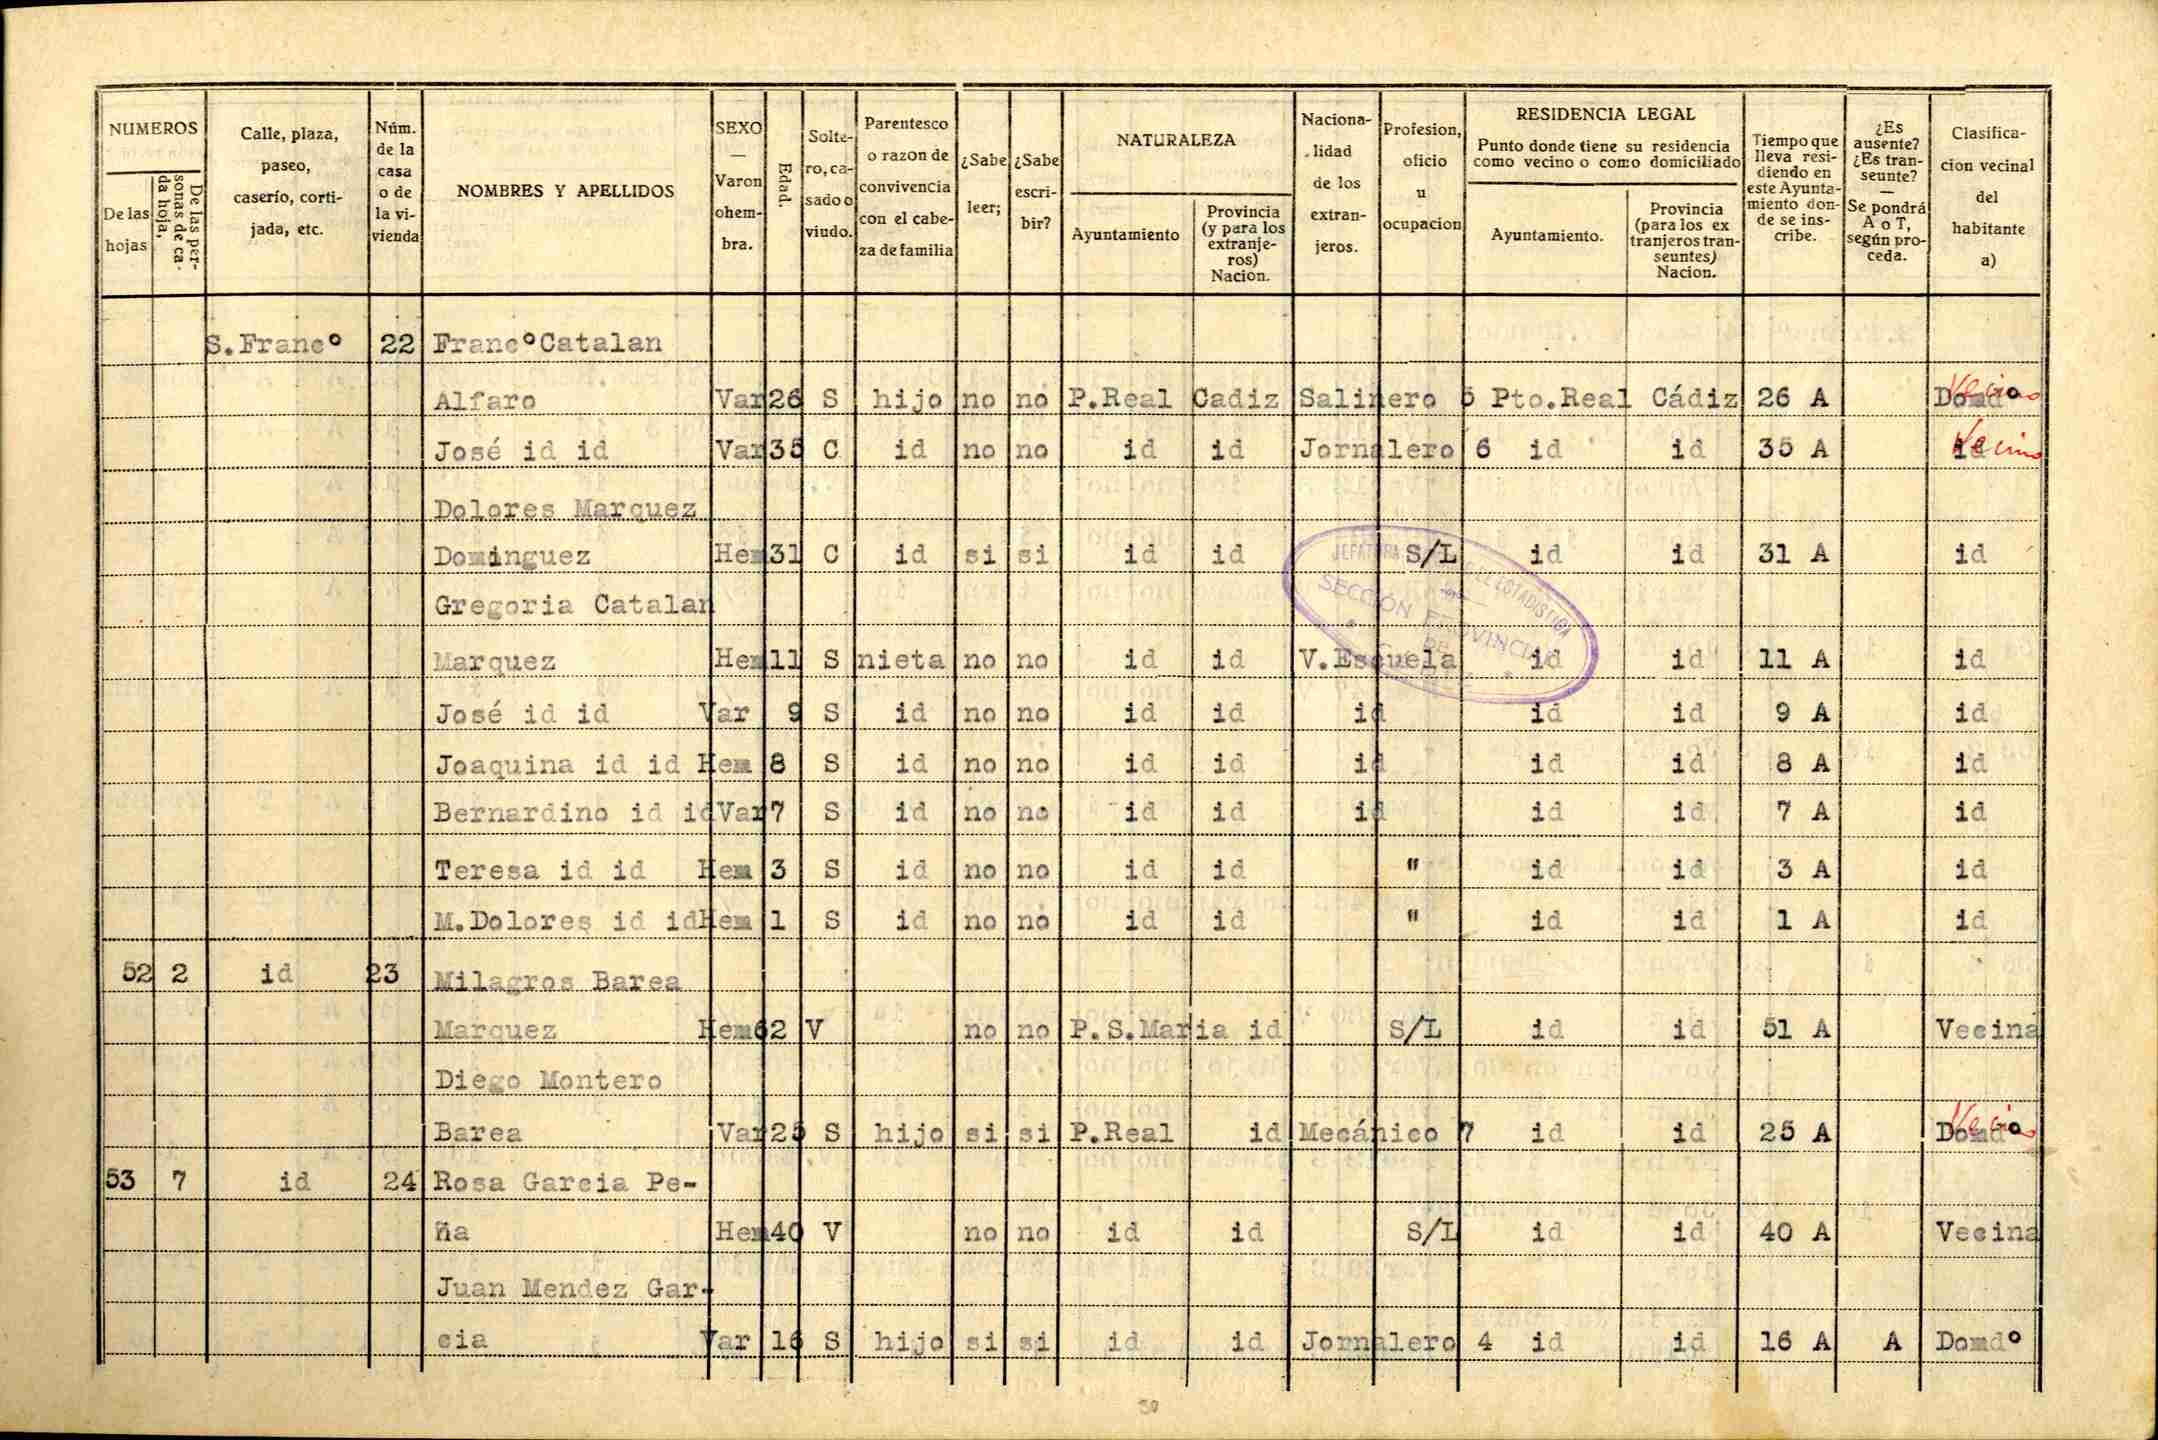 NUMEROS
De las hojas
De las personas de cada hoja,
Calle, plaza, paseo, caserío, cortijada, etc.
Núm. de la casa o de la vivienda
NOMBRES Y APELLIDOS
SEXO — Varon ohembra.
Edad.
Soltero, casado o viudo.
Parentesco o razon de convivencia con el cabeza de familia
¿Sabe leer;
¿Sabe escribir?
NATURALEZA
Ayuntamiento
Provincia (y para los extranjeros) Nacion.
Nacionalidad de los extranjeros.
Profesion, oficio u ocupacion
RESIDENCIA LEGAL
Punto donde tiene su residencia como vecino o como domiciliado
Ayuntamiento.
Provincia (para los ex tranjeros transeuntes) Nacion.
Tiempo que lleva residiendo en este Ayuntamiento donde se inscribe.
¿Es ausente? ¿Es transeunte? — Se pondrá A o T, según proceda.
Clasificacion vecinal del habitante a)
S.Francº 22 FrancºCatalan
Alfaro Var 26 S hijo no no P.Real Cadiz Salinero 5 Pto.Real Cádiz 26 A Domdº Vecino
José id id Var 35 C id no no id id Jornalero 6 id id 35 A id Vecino
Dolores Marquez
Dominguez Hem 31 C id si si id id S/L id id 31 A id
Gregoria Catalan
Marquez Hem 11 S nieta no no id id V.Escuela id id 11 A id
José id id Var 9 S id no no id id id id id 9 A id
Joaquina id id Hem 8 S id no no id id id id id 8 A id
Bernardino id id Var 7 S id no no id id id id id 7 A id
Teresa id id Hem 3 S id no no id id " id id 3 A id
M.Dolores id id Hem 1 S id no no id id " id id 1 A id
52 2 id 23 Milagros Barea
Marquez Hem 62 V no no P.S.Maria id S/L id id 51 A Vecina
Diego Montero
Barea Var 25 S hijo si si P.Real id Mecánico 7 id id 25 A Domdº Vecino
53 7 id 24 Rosa Garcia Pe-
ña Hem 40 V no no id id S/L id id 40 A Vecina
Juan Mendez Gar-
cia Var 16 S hijo si si id id Jornalero 4 id id 16 A A Domdº
JEFATURA ESTADISTICA
SECCIÓN PROVINCIAL
DE
30